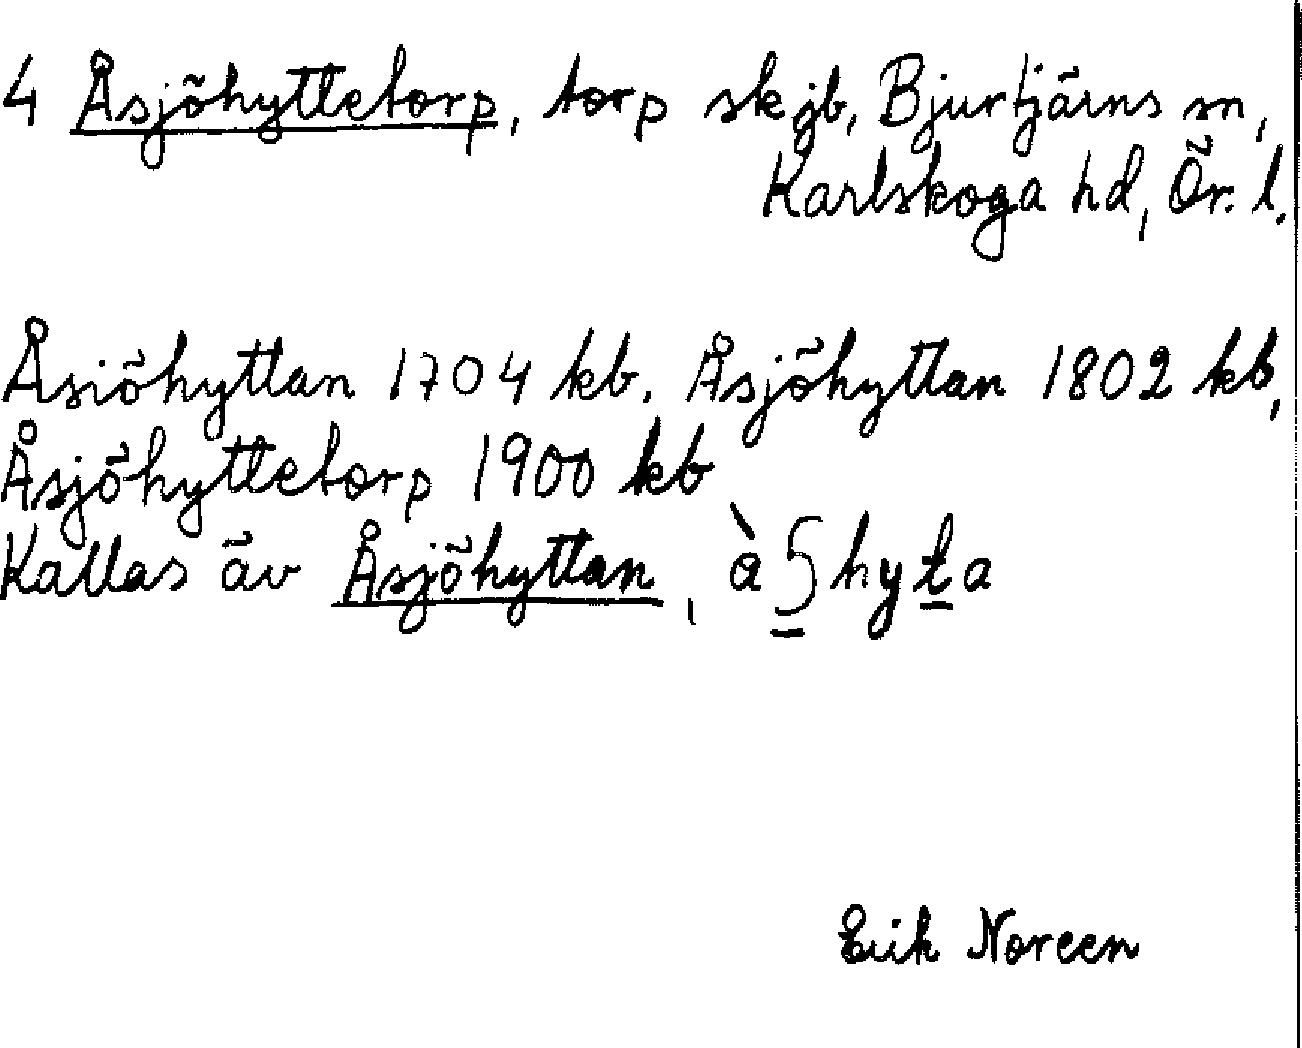 4 Åsjöhyttetorp, torp skjb, Bjurtjärns sn,
Karlskoga hd, Ör. l.
Åsiöhyttan 1704 kb. Åsjöhyttan 1802 kb,
Åsjöhyttetorp 1900 kb
Kallas äv Åsjöhyttan,
Erik Noreen